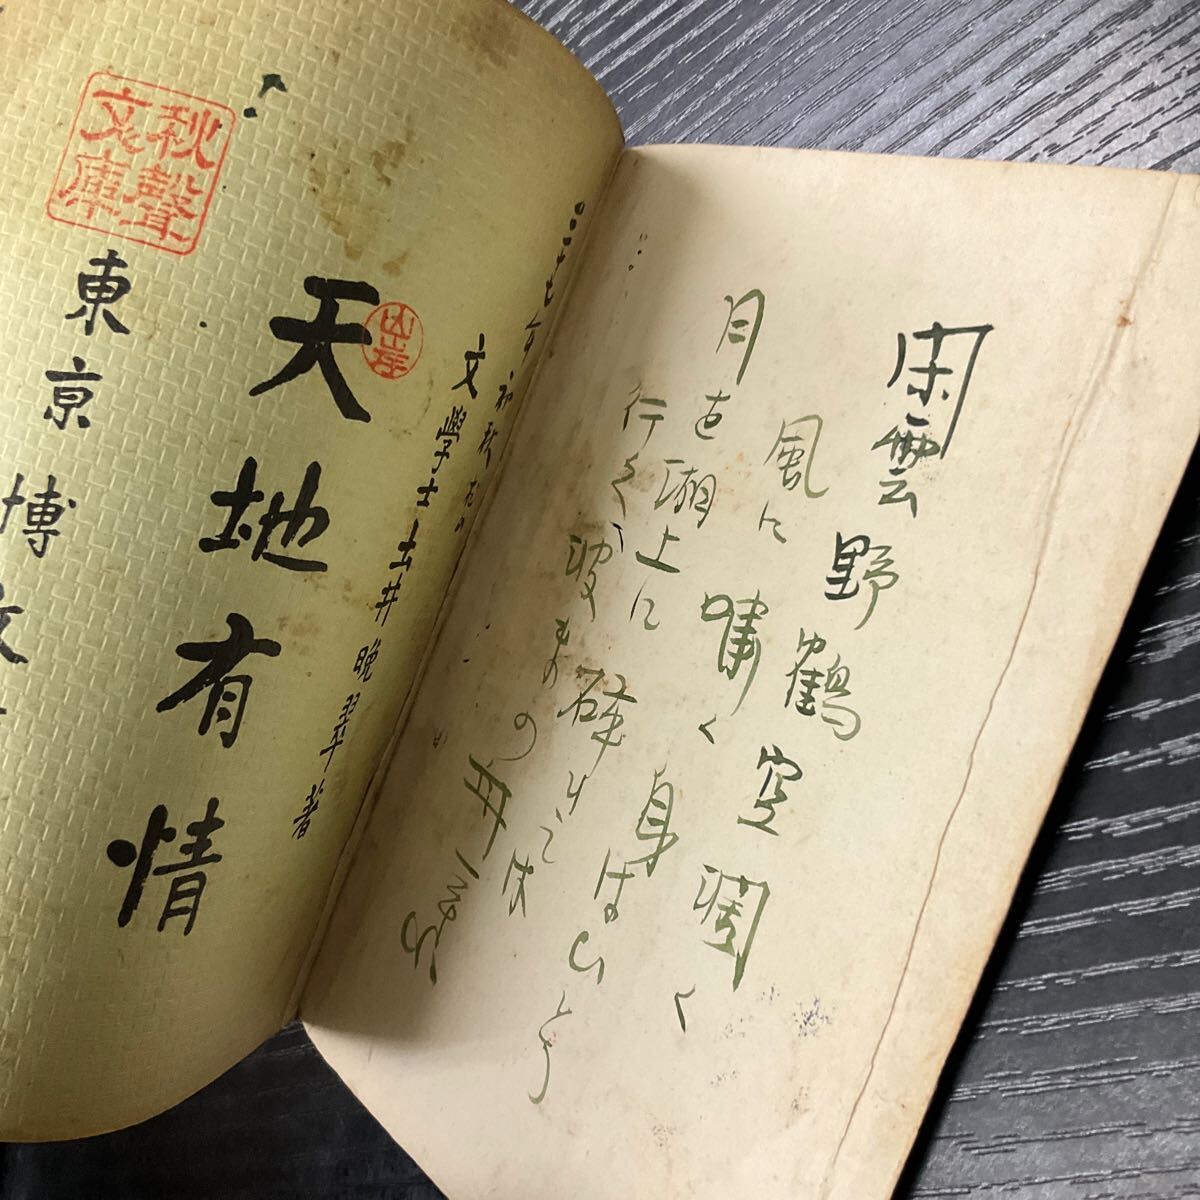 閑雲野鶴空濶く
風に嘯く身はひとり
月を湖上に砕きては
行くへ波まの舟一葉
文學士土井晩翠著
天地有情
山岸
東京博文
秋聲
文庫